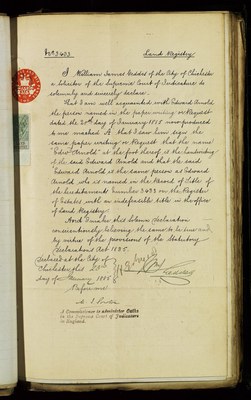 No 3493. Land Registry
I William James Geddes of the City of Chichester
a Solicitor of the Supreme Court of Judicature do
solemnly and sincerely declare.
That I am well acquainted with Edward Arnold
the person named in the paper writing or Request
dated the 20th day of January 1885 now produced
to me marked A that I saw him sign the
same paper writing or Request that the name
"Edwd Arnold" at the foot thereof is the handwriting
of the said Edward Arnold and that the said
Edward Arnold is the same person as Edward
Arnold who is named in the Record of Title of
the hereditaments Number 3493 on the Register
of Estates with an indefeasible title in the office
of Land Registry.
And I make this solemn Declaration
conscientiously believing the same to be true and
by virtue of the provisions of the Statutory
Declarations Act 1835.
Declared at the City of
Chichester this
day of January 1885
Before me
A Commissioner to administer Oaths
in the Supreme Court of Judicature
in England